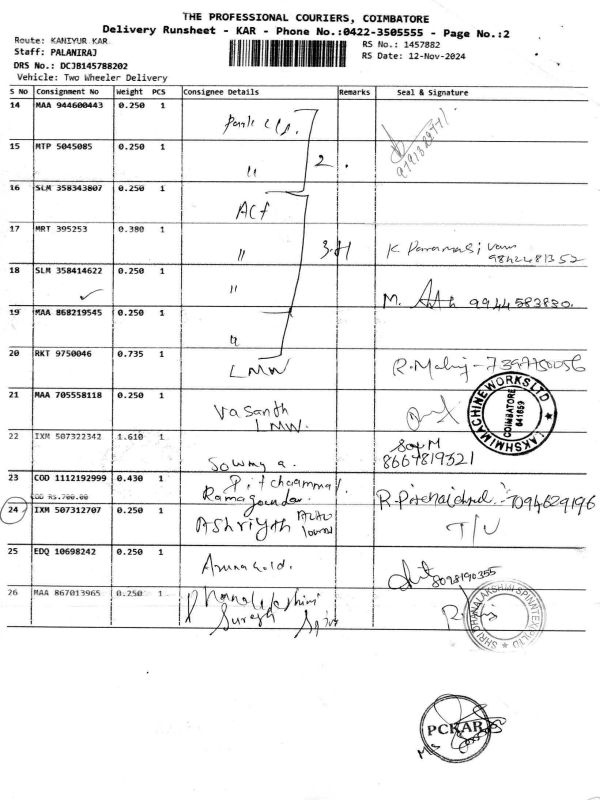 THE PROFESSIONAL COURIERS, COIMBATORE
Delivery Runsheet - KAR - Phone No.:0422-3505555 - Page No.:2
Route: KANIYUR KAR
RS No.: 1457882
Staff: PALANIRAJ
RS Date: 12-Nov-2024
DRS No.: DCJB145788202
Vehicle: Two Wheeler Delivery
S No Consignment No Weight PCS Consignee Details Remarks Seal & Signature
14 MAA 944600443 0.250 1
15 MTP 5045085 0.250 1 " 2.
16 SLM 358343807 0.250 1 ACF
17 MRT 395253 0.380 1 " K. Paramasivam
9842481352
18 SLM 358414622 0.250 1 " M. 9944583830.
19 MAA 868219545 0.250 1 "
20 RKT 9750046 0.735 1 LMW
21 MAA 705558118 0.250 1 Vasanth
LMW.
LAKSHMI MACHINE WORKS LTD
COIMBATORE
641659
22 IXM 507322342 1.610 1 Sowmya. 8667819321
23 COD 1112192999 0.430 1 Pitchaammal
Ramagoundar.
COD RS.700.00
24 IXM 507312707 0.250 1 7094629196
25 EDQ 10698242 0.250 1 8098190355
26 MAA 867013965 0.250 1 Dhanalakshmi
Suresh
SHRI DHANALAKSHMI SPINNTEX (P) LTD
PCKAR